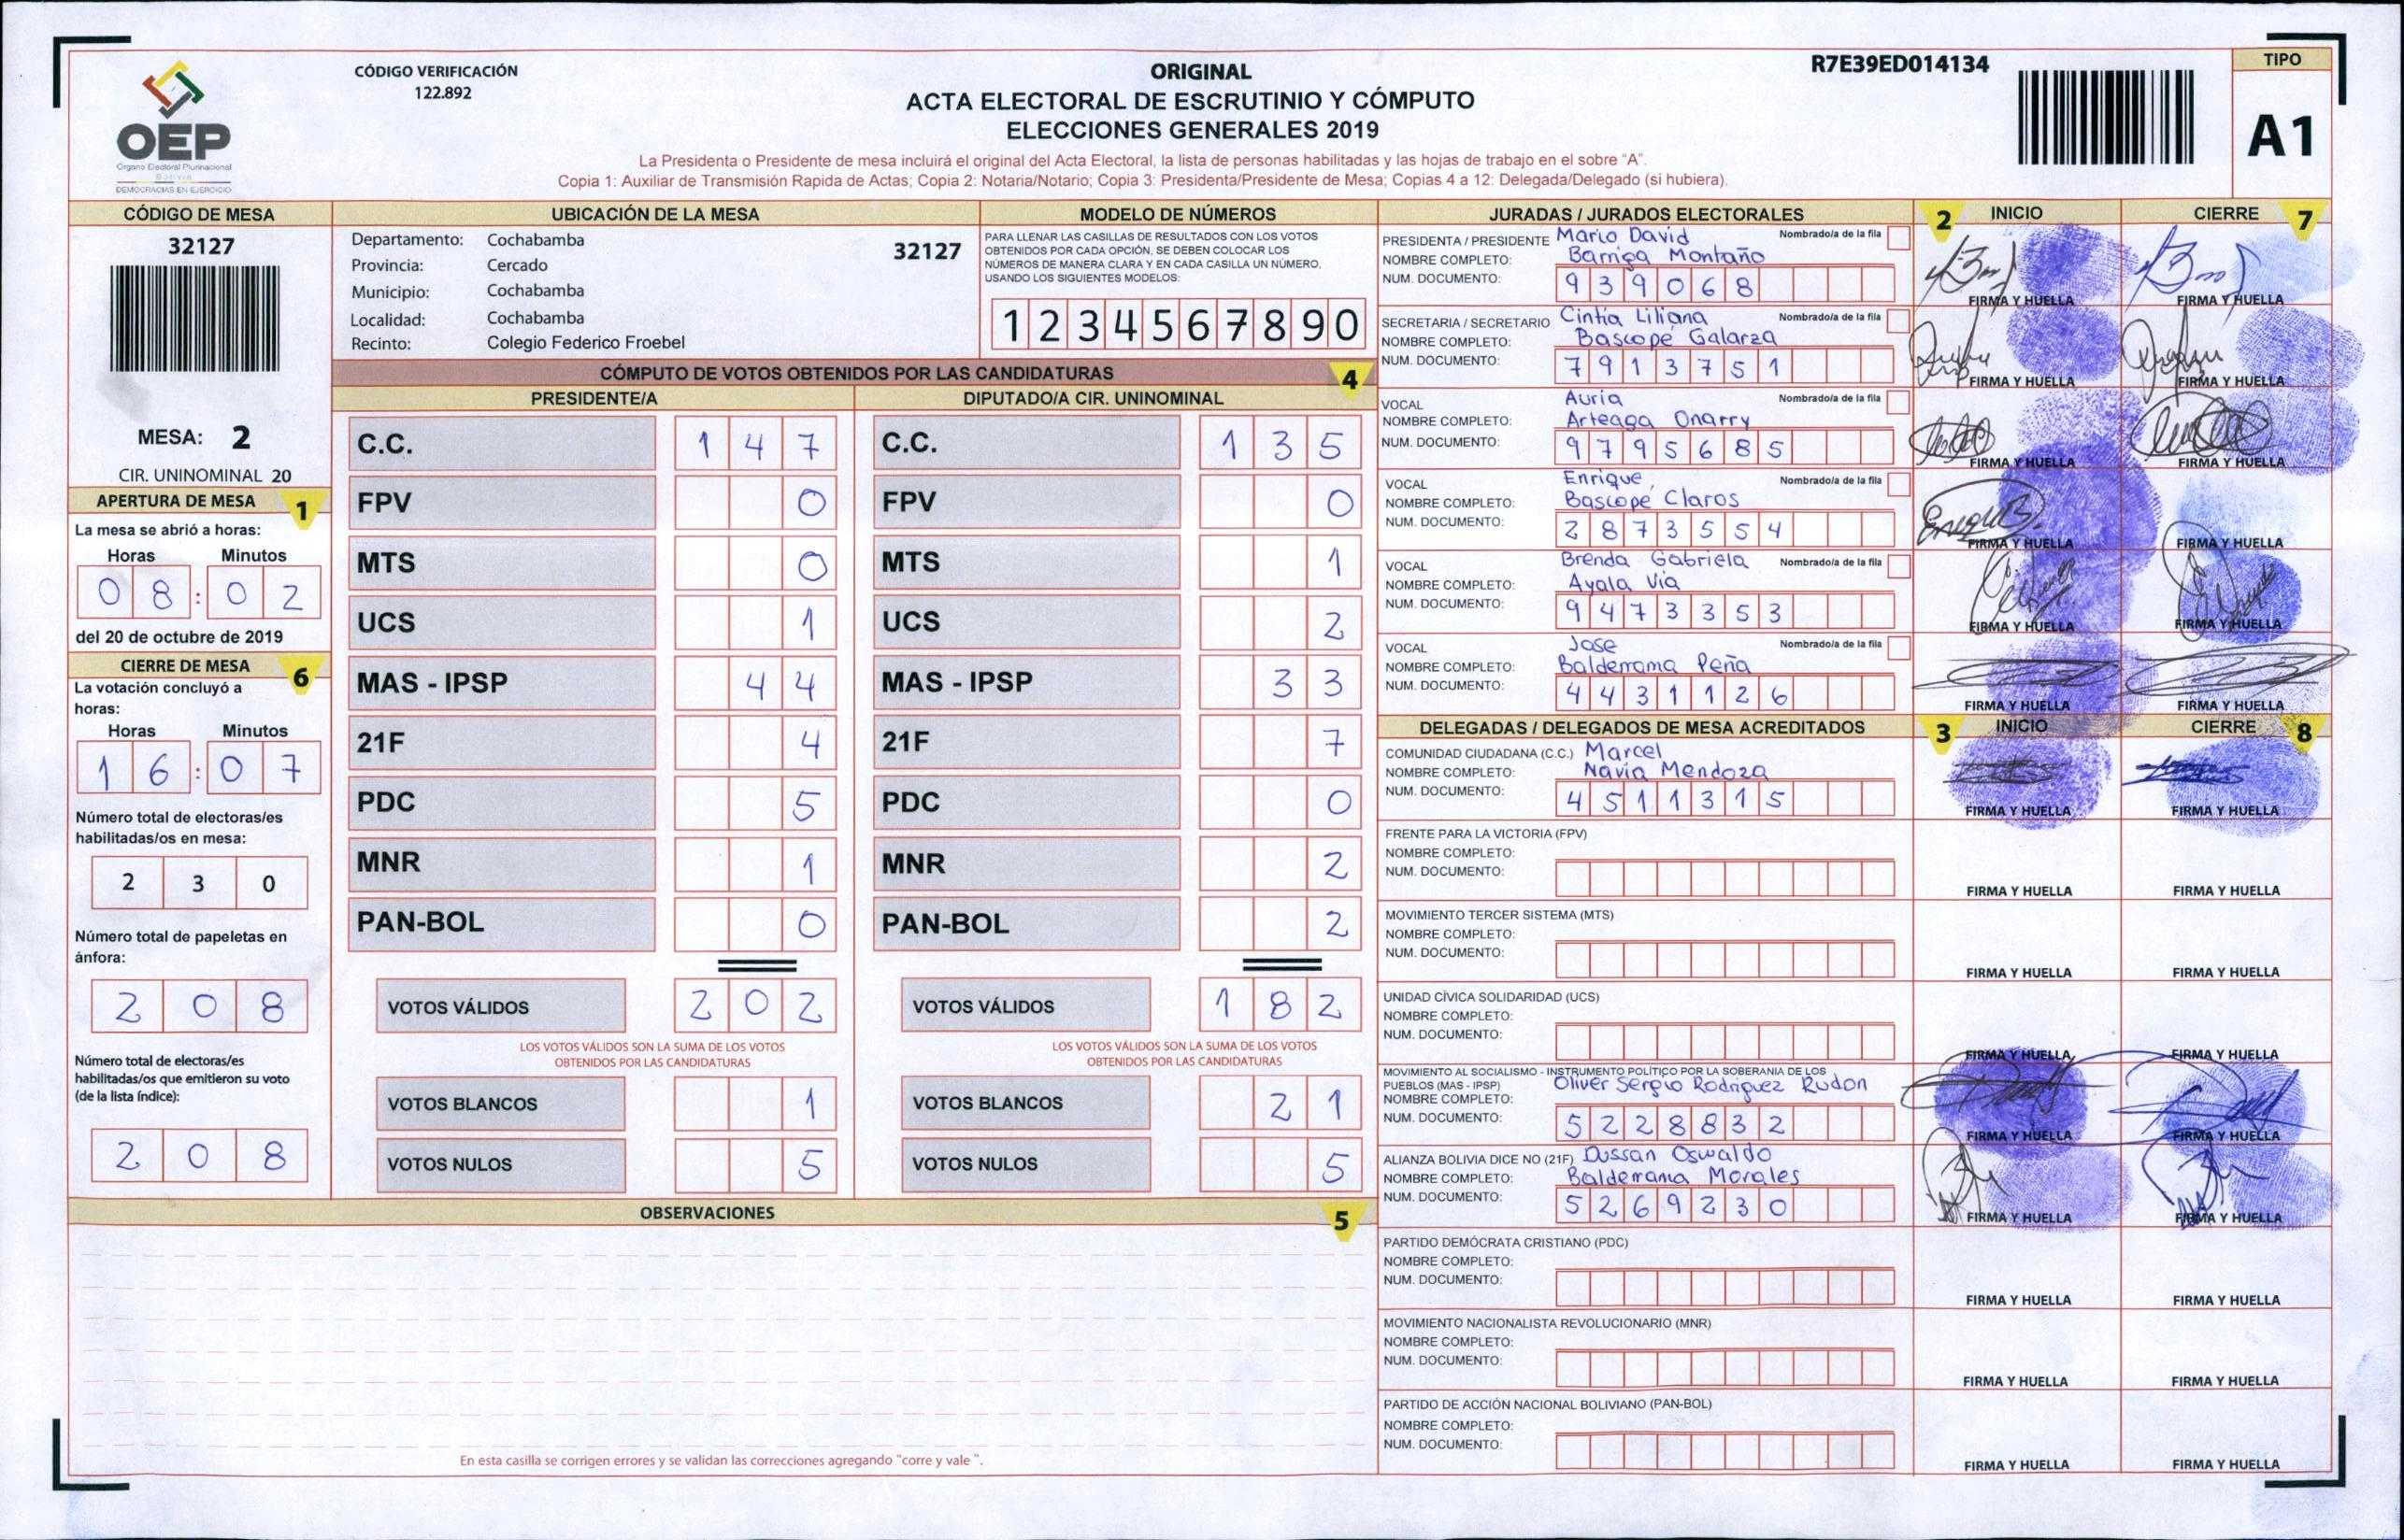 OEP
Órgano Electoral Plurinacional
Bolivia
DEMOCRACIAS EN EJERCICIO
CÓDIGO VERIFICACIÓN
122.892
ORIGINAL
ACTA ELECTORAL DE ESCRUTINIO Y CÓMPUTO
ELECCIONES GENERALES 2019
La Presidenta o Presidente de mesa incluirá el original del Acta Electoral, la lista de personas habilitadas y las hojas de trabajo en el sobre "A".
Copia 1: Auxiliar de Transmisión Rapida de Actas; Copia 2: Notaria/Notario; Copia 3: Presidenta/Presidente de Mesa; Copias 4 a 12: Delegada/Delegado (si hubiera).
R7E39ED014134
TIPO
A1
CÓDIGO DE MESA
32127
MESA: 2
CIR. UNINOMINAL 20
APERTURA DE MESA 1
La mesa se abrió a horas:
Horas Minutos
0 8 : 0 2
del 20 de octubre de 2019
CIERRE DE MESA 6
La votación concluyó a
horas:
Horas Minutos
1 6 : 0 7
Número total de electoras/es
habilitadas/os en mesa:
2 3 0
Número total de papeletas en
ánfora:
2 0 8
Número total de electoras/es
habilitadas/os que emitieron su voto
(de la lista índice):
2 0 8
UBICACIÓN DE LA MESA
Departamento: Cochabamba 32127
Provincia: Cercado
Municipio: Cochabamba
Localidad: Cochabamba
Recinto: Colegio Federico Froebel
MODELO DE NÚMEROS
PARA LLENAR LAS CASILLAS DE RESULTADOS CON LOS VOTOS
OBTENIDOS POR CADA OPCIÓN, SE DEBEN COLOCAR LOS
NÚMEROS DE MANERA CLARA Y EN CADA CASILLA UN NÚMERO,
USANDO LOS SIGUIENTES MODELOS:
1 2 3 4 5 6 7 8 9 0
CÓMPUTO DE VOTOS OBTENIDOS POR LAS CANDIDATURAS 4
PRESIDENTE/A
C.C. 1 4 7
FPV 0
MTS 0
UCS 1
MAS - IPSP 4 4
21F 4
PDC 5
MNR 1
PAN-BOL 0
VOTOS VÁLIDOS 2 0 2
LOS VOTOS VÁLIDOS SON LA SUMA DE LOS VOTOS
OBTENIDOS POR LAS CANDIDATURAS
VOTOS BLANCOS 1
VOTOS NULOS 5
DIPUTADO/A CIR. UNINOMINAL
C.C. 1 3 5
FPV 0
MTS 1
UCS 2
MAS - IPSP 3 3
21F 7
PDC 0
MNR 2
PAN-BOL 2
VOTOS VÁLIDOS 1 8 2
LOS VOTOS VÁLIDOS SON LA SUMA DE LOS VOTOS
OBTENIDOS POR LAS CANDIDATURAS
VOTOS BLANCOS 2 1
VOTOS NULOS 5
OBSERVACIONES 5
En esta casilla se corrigen errores y se validan las correcciones agregando "corre y vale ".
JURADAS / JURADOS ELECTORALES 2 INICIO CIERRE 7
PRESIDENTA / PRESIDENTE Mario David Nombrado/a de la fila
NOMBRE COMPLETO: Barriga Montaño
NUM. DOCUMENTO: 9 3 9 0 6 8
FIRMA Y HUELLA FIRMA Y HUELLA
SECRETARIA / SECRETARIO Cintia Liliana Nombrado/a de la fila
NOMBRE COMPLETO: Bascopé Galarza
NUM. DOCUMENTO: 7 9 1 3 7 5 1
FIRMA Y HUELLA FIRMA Y HUELLA
VOCAL Auria Nombrado/a de la fila
NOMBRE COMPLETO: Arteaga Onarry
NUM. DOCUMENTO: 9 7 9 5 6 8 5
FIRMA Y HUELLA FIRMA Y HUELLA
VOCAL Enrique Nombrado/a de la fila
NOMBRE COMPLETO: Bascope Claros
NUM. DOCUMENTO: 2 8 7 3 5 5 4
FIRMA Y HUELLA FIRMA Y HUELLA
VOCAL Brenda Gabriela Nombrado/a de la fila
NOMBRE COMPLETO: Ayala Via
NUM. DOCUMENTO: 9 4 7 3 3 5 3
FIRMA Y HUELLA FIRMA Y HUELLA
VOCAL Jose Nombrado/a de la fila
NOMBRE COMPLETO: Balderrama Peña
NUM. DOCUMENTO: 4 4 3 1 1 2 6
FIRMA Y HUELLA FIRMA Y HUELLA
DELEGADAS / DELEGADOS DE MESA ACREDITADOS 3 INICIO CIERRE 8
COMUNIDAD CIUDADANA (C.C.) Marcel
NOMBRE COMPLETO: Navia Mendoza
NUM. DOCUMENTO: 4 5 1 1 3 1 5
FIRMA Y HUELLA FIRMA Y HUELLA
FRENTE PARA LA VICTORIA (FPV)
NOMBRE COMPLETO:
NUM. DOCUMENTO:
FIRMA Y HUELLA FIRMA Y HUELLA
MOVIMIENTO TERCER SISTEMA (MTS)
NOMBRE COMPLETO:
NUM. DOCUMENTO:
FIRMA Y HUELLA FIRMA Y HUELLA
UNIDAD CÍVICA SOLIDARIDAD (UCS)
NOMBRE COMPLETO:
NUM. DOCUMENTO:
FIRMA Y HUELLA FIRMA Y HUELLA
MOVIMIENTO AL SOCIALISMO - INSTRUMENTO POLÍTICO POR LA SOBERANIA DE LOS
PUEBLOS (MAS - IPSP) Oliver Sergio Rodriguez Rudon
NOMBRE COMPLETO:
NUM. DOCUMENTO: 5 2 2 8 8 3 2
FIRMA Y HUELLA FIRMA Y HUELLA
ALIANZA BOLIVIA DICE NO (21F) Dussan Oswaldo
NOMBRE COMPLETO: Balderrama Morales
NUM. DOCUMENTO: 5 2 6 9 2 3 0
FIRMA Y HUELLA FIRMA Y HUELLA
PARTIDO DEMÓCRATA CRISTIANO (PDC)
NOMBRE COMPLETO:
NUM. DOCUMENTO:
FIRMA Y HUELLA FIRMA Y HUELLA
MOVIMIENTO NACIONALISTA REVOLUCIONARIO (MNR)
NOMBRE COMPLETO:
NUM. DOCUMENTO:
FIRMA Y HUELLA FIRMA Y HUELLA
PARTIDO DE ACCIÓN NACIONAL BOLIVIANO (PAN-BOL)
NOMBRE COMPLETO:
NUM. DOCUMENTO:
FIRMA Y HUELLA FIRMA Y HUELLA